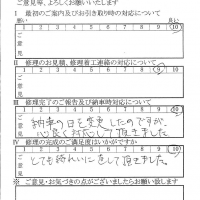 ご意見等、よろしくお願いいたします
Ⅰ 最初のご案内及びお引き取り時の対応について
悪い 良い
1 2 3 4 5 6 7 8 9 10
ご意見
Ⅱ 修理のお見積、修理着工連絡の対応について
1 2 3 4 5 6 7 8 9 10
ご意見
Ⅲ 修理完了のご報告及び納車時対応について
1 2 3 4 5 6 7 8 9 10
ご意見
納車の日を変更したのですが、
心良く対応して頂きました
Ⅳ 修理の完成のご満足度はいかがですか
1 2 3 4 5 6 7 8 9 10
ご意見
とても綺麗に直して頂きました。
※ご意見・お気づきの点がございましたらお願い致します